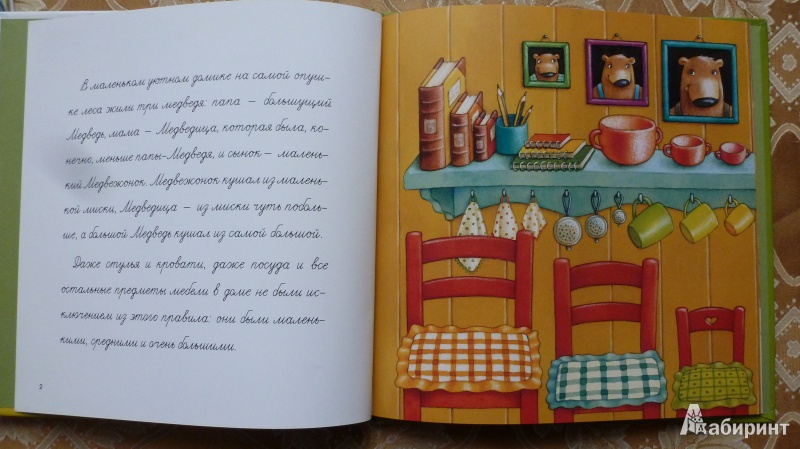 В маленьком уютном домике на самой опуш-
ке леса жили три медведя: папа — большущий
Медведь, мама — Медведица, которая была, ко-
нечно, меньше папы-Медведя, и сынок — малень-
кий Медвежонок. Медвежонок кушал из малень-
кой миски, Медведица — из миски чуть поболь-
ше, а большой Медведь кушал из самой большой.
Даже стулья и кровати, даже посуда и все
остальные предметы мебели в доме не были ис-
ключением из этого правила: они были малень-
кими, средними и очень большими.
2
Лабиринт